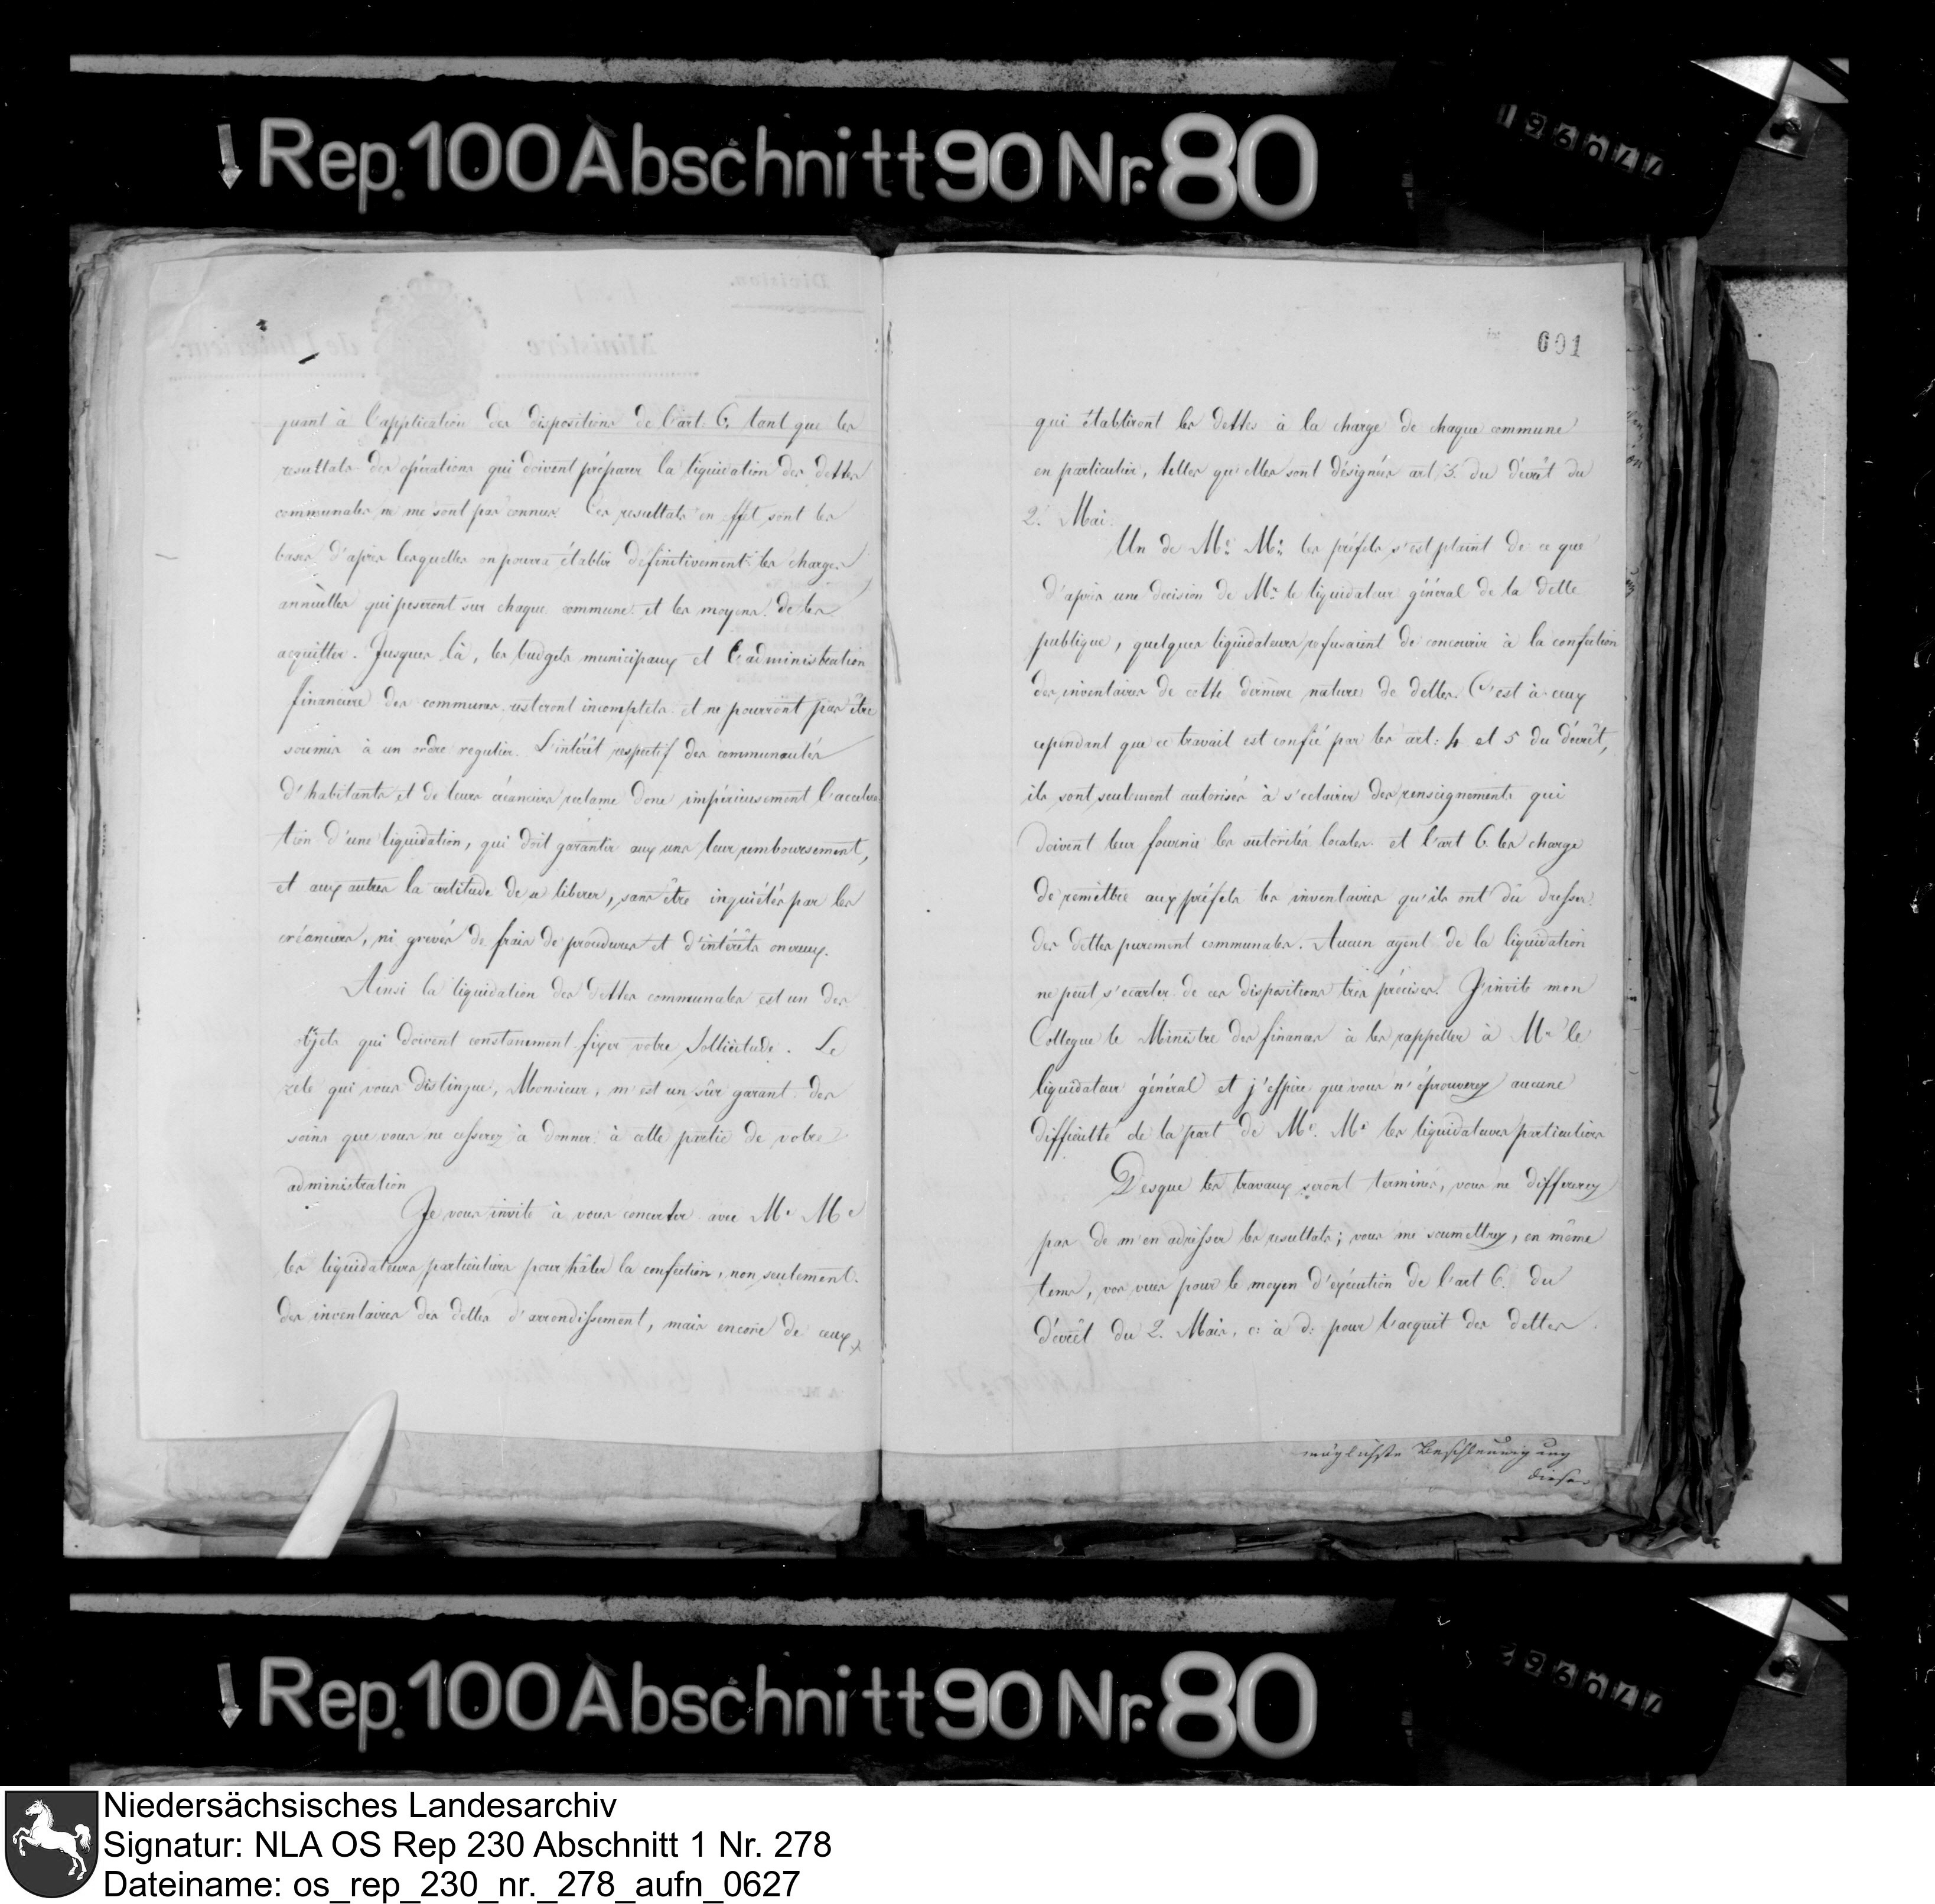 Rep. 100 Abschnitt 90 Nr. 80
196044
quant à l'application des dispositions de l'art: 6. tant que les
resultats des opérations qui doivent préparer la liquidation des dettes
communales ne me sont pas connus. Ces resultats en effet sont les
bases d'après lesquelles on pourra établir définitivement les charges
annuelles qui peseront sur chaque commune et les moyens de les
acquitter. Jusques là, les budgets municipaux et l'administration
financière des communes resteront incomplets et ne pourront pas être
soumis à un ordre regulier. L'intérêt respectif des communautés
d'habitants et de leurs créanciers reclame donc impérieusement l'accelera
tion d'une liquidation, qui doit garantir aux uns leur remboursement,
et aux autres la certitude de se liberer, sans être inquiétés par les
créanciers, ni grevés de frais de procedures et d'intérêts onereux.
Ainsi la liquidation des dettes communales est un des
objets qui doivent constamment fixer votre Sollicitude. Le
zele qui vous distingue, Monsieur, m'est un sûr garant des
soins que vous ne cesserez à donner à cette partie de votre
administration
Je vous invite à vous concerter avec Mr Mr
les liquidateurs particuliers pour hâter la confection, non seulement
des inventaires des dettes d'arrondissement, mais encore de ceux
601
qui établiront les dettes à la charge de chaque commune
en particulier, telles qu'elles sont désignées art 3. du décrêt du
2. Mai.
Un de Mrs Mrs les préfets s'est plaint de ce que
d'après une decision de Mr. le liquidateur général de la dette
publique, quelques liquidateurs refusaient de concourir à la confection
des inventaires de cette dernière nature de dettes. C'est à ceux
cependant que ce travail est confié par les art: 4 et 5 du décrêt,
ils sont seulement autorisés à s'eclairer des renseignements qui
doivent leur fournir les autorités locales et l'art 6. les charge
de remettre aux préfets les inventaires qu'ils ont dû dresser
des dettes purement communales. Aucun agent de la liquidation
ne peut s'ecarter de ces dispositions très précises. J'invite mon
Collegue le Ministre des finances à les rappeller à Mr le
liquidateur général et j'espère que vous n'éprouverez aucune
difficulté de la part de Mr. Mr les liquidateurs particuliers
Desque les travaux seront terminés, vous ne differerez
pas de m'en adresser les resultats; vous me soumettrez, en même
tems, vos vues pour le moyen d'exécution de l'art 6. du
décrêt du 2. Mais, c: à d: pour l'acquit des dettes
möglichste Beschleunigung
dieser
Rep. 100 Abschnitt 90 Nr. 80
Niedersächsisches Landesarchiv
Signatur: NLA OS Rep 230 Abschnitt 1 Nr. 278
Dateiname: os_rep_230_nr._278_aufn_0627